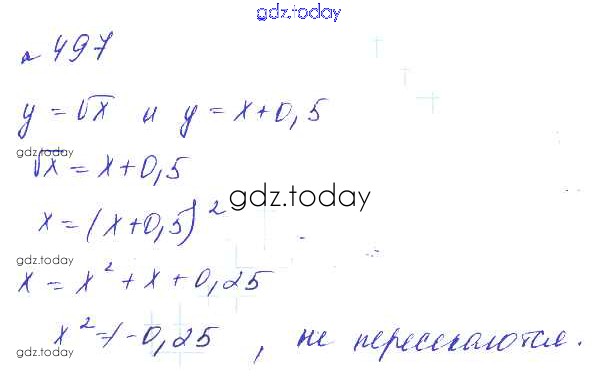 gdz.today
№ 497
y = √x и y = x + 0,5
gdz.today
√x = x + 0,5
gdz.today
x = (x + 0,5)²
gdz.today
x = x² + x + 0,25
gdz.today
x² ≠ -0,25 , не пересекаются.